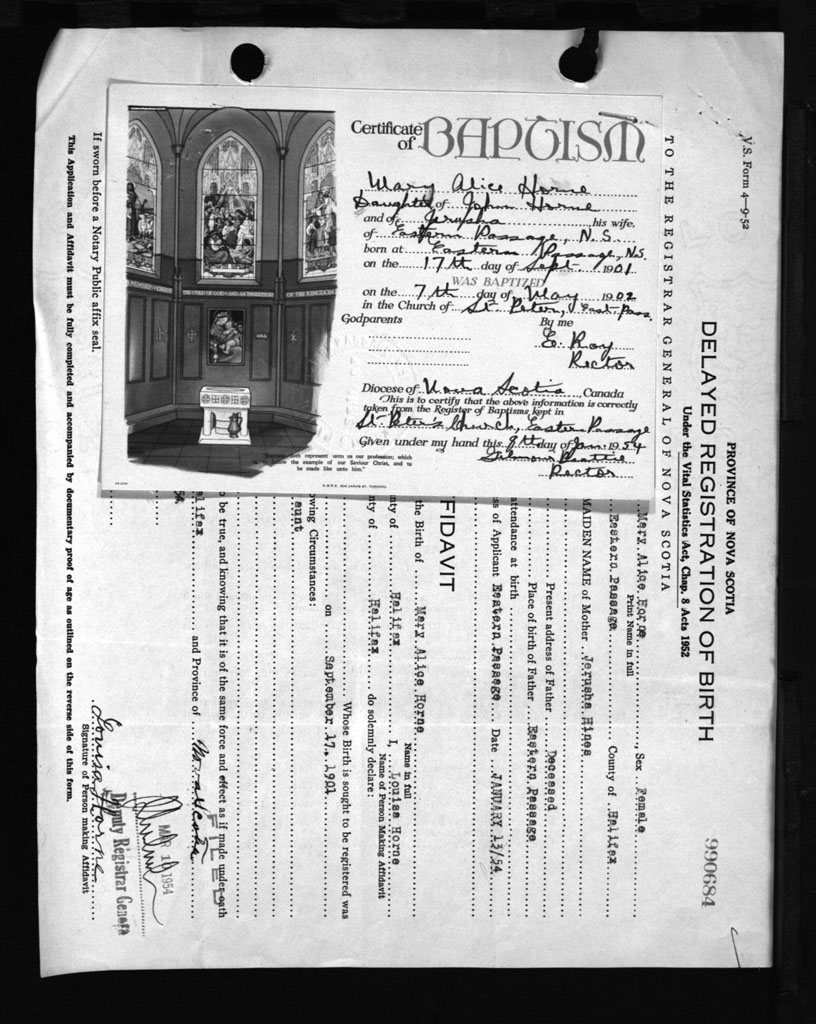 Certificate of BAPTISM
Mary Alice Horne
Daughter of John Horne
and of Jerusha, his wife,
of Eastern Passage, N.S.
born at Eastern Passage, N.S.
on the 17th day of Sept. 1901
WAS BAPTIZED
on the 7th day of May 1902
in the Church of St. Peter, East. Pass.
Godparents By me
E. Roy
Rector
Diocese of Nova Scotia, Canada
This is to certify that the above information is correctly
taken from the Register of Baptisms kept in
St. Peter's Church, Eastern Passage
Given under my hand this 8th day of Jan. 1954
Beattie
Rector
represent unto us our profession; which
the example of our Saviour Christ, and to
be made like unto him."
V.S. Form 4—9-52
990684
PROVINCE OF NOVA SCOTIA
DELAYED REGISTRATION OF BIRTH
Under the Vital Statistics Act, Chap. 8 Acts 1952
TO THE REGISTRAR GENERAL OF NOVA SCOTIA
Mary Alice Horne Sex Female
Print Name in full
Eastern Passage County of Halifax
MAIDEN NAME of Mother Jerusha Hines
Present address of Father Deceased
Place of birth of Father Eastern Passage
attendance at birth
ss of Applicant Eastern Passage Date JANUARY 13/54
FIDAVIT
the Birth of Mary Alice Horne
Name in full
nty of Halifax I, Louise Horne
Name of Person Making Affidavit
nty of Halifax do solemnly declare:
Whose Birth is sought to be registered was
on September 17, 1901
owing Circumstances:
aunt
o be true, and knowing that it is of the same force and effect as if made under oath
alifax and Province of Nova Scotia
FILED
MAR 1 1954
Deputy Registrar General
Louisa Horne
Signature of Person making Affidavit
If sworn before a Notary Public affix seal.
This Application and Affidavit must be fully completed and accompanied by documentary proof of age as outlined on the reverse side of this form.